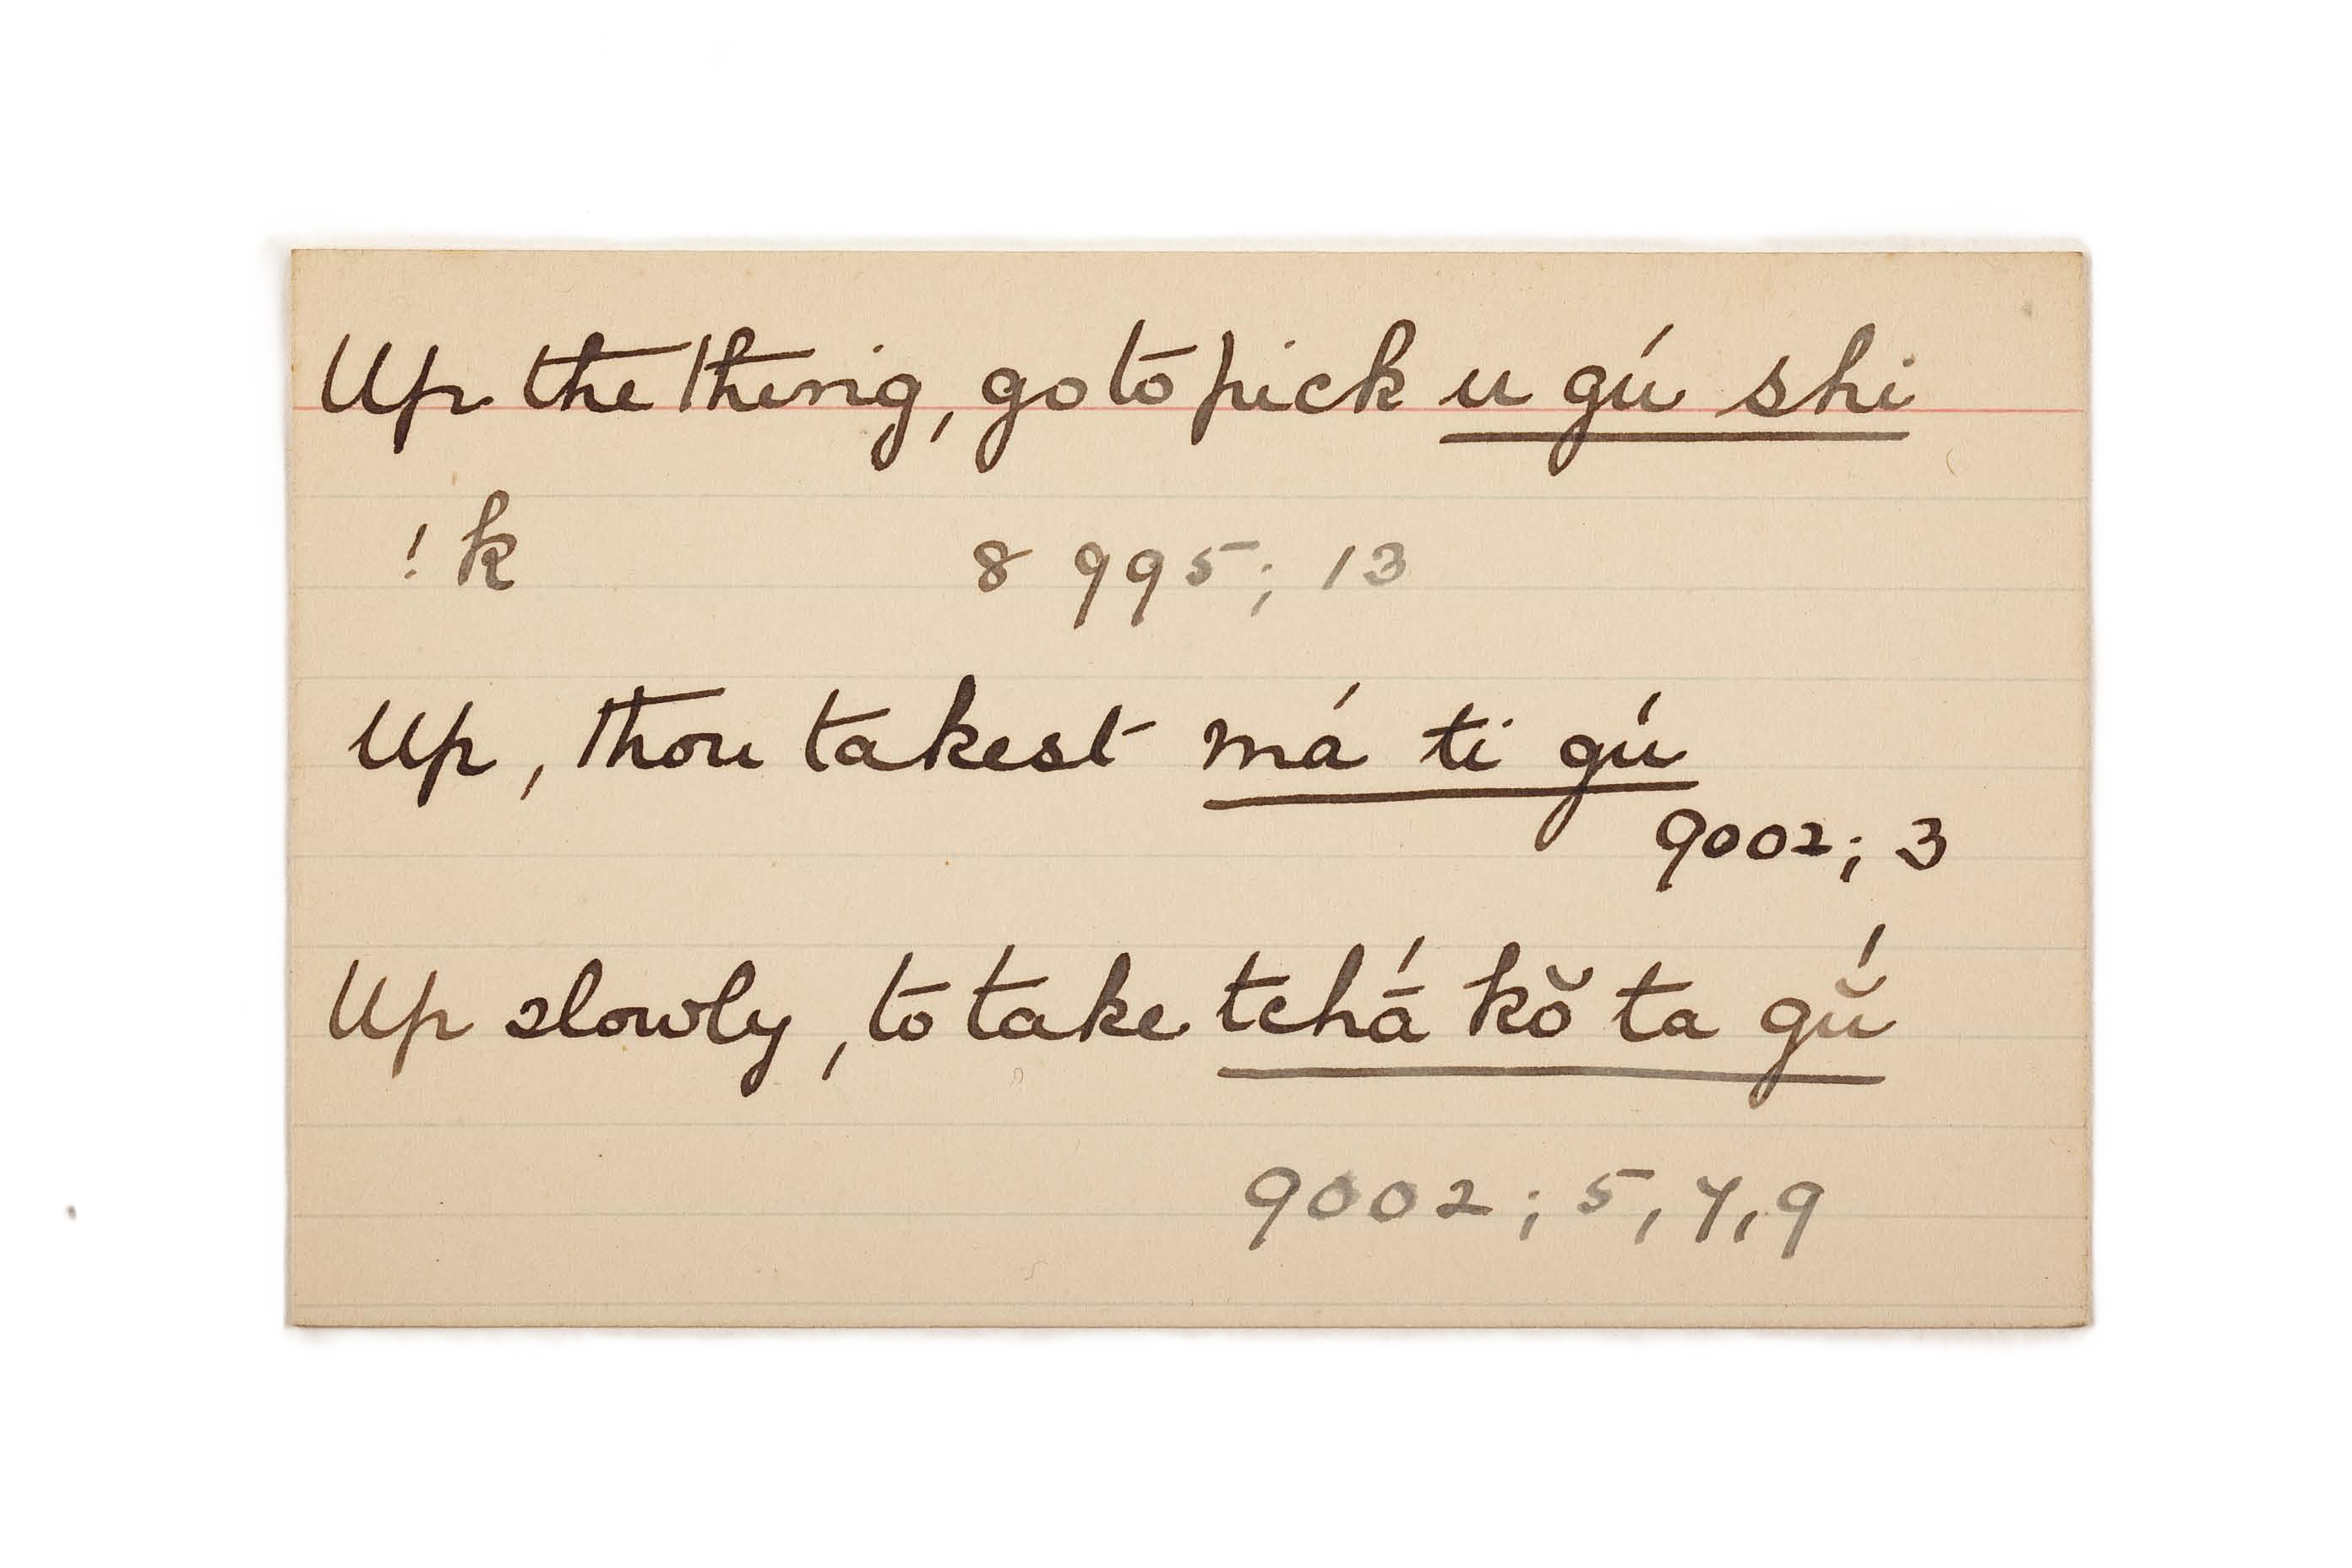 Up the thing, go to pick u gú shi
! k 8 995; 13
Up, thou takest má ti gú
9002; 3
Up slowly, to take tchā́ kŏ ta gŭ́
9002; 5, 7, 9